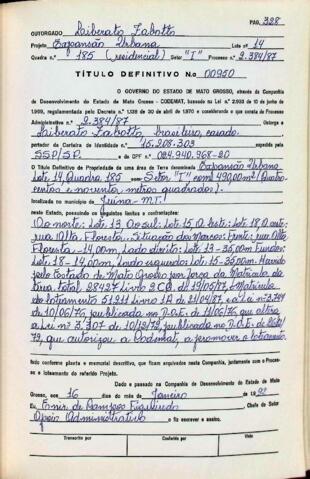 PAG. 328
OUTORGADO Liberato Zabotto
Projeto Expansão Urbana Lote nº 14
Quadra n.º 185 (residencial) Setor "I" Processo n.º 2.384/87
TÍTULO DEFINITIVO No 00950
O GOVERNO DO ESTADO DE MATO GROSSO, através da Companhia
de Desenvolvimento do Estado de Mato Grosso - CODEMAT, baseado na Lei n.º 2.933 de 10 de junho de
1969, regulamentada pelo Decreto n.º 1.138 de 30 de abril de 1970 e considerando o que consta do Processo
Administrativo n.º 2.384/87 Outorga a
Liberato Zabotto, brasileiro, casado.
portador da Carteira de Identidade n.º 15.208.303 expedida pela
SSP/SP. e do CPF n.º 024.940.968-20
O Título Definitivo de Propriedade de uma área de Terra denominada Expansão Urbana
Lote 14, Quadra 185 com Setor "I" com 490,00m² (Quatro
centos e noventa metros quadrados).
localizada no município de Juína-MT.
neste Estado, possuindo os seguintes limites e confrontações:
Ao norte: Lote 13 Ao sul: Lote 15 A
rua Alta Floresta. Situação dos Marcos: Frente: rua Alta
Floresta-14,00m. Lado direito: lote 13-35,00m Fundos:
Lote 18-14,00m. Lado esquerdo: Lote 15-35,00m. Havido
pelo Estado de Mato Grosso por força da Matrícula da
área total 28427 Livro 2 matrícula
do loteamento 51.911 Livro
10/06/76, publicada no D.O.E. de 11/06/76, que altera
a Lei nº 3.307 de 10/12/72, publicada no D.O.E. de
que autorizou a Codemat, a promover o loteamento.
tudo conforme planta e memorial descritivo, que ficam arquivados nesta Companhia, juntamente com o Proces-
so e loteamento do referido Projeto.
Dado e passado na Companhia de Desenvolvimento do Estado de Mato
Grosso, aos 16 dias do mês de Janeiro de 1992
Eu, Enir de Campos Figueiredo Chefe do Setor
Apoio Administrativo o fiz escrever e assino.
Transcrito por Conferido por Visto